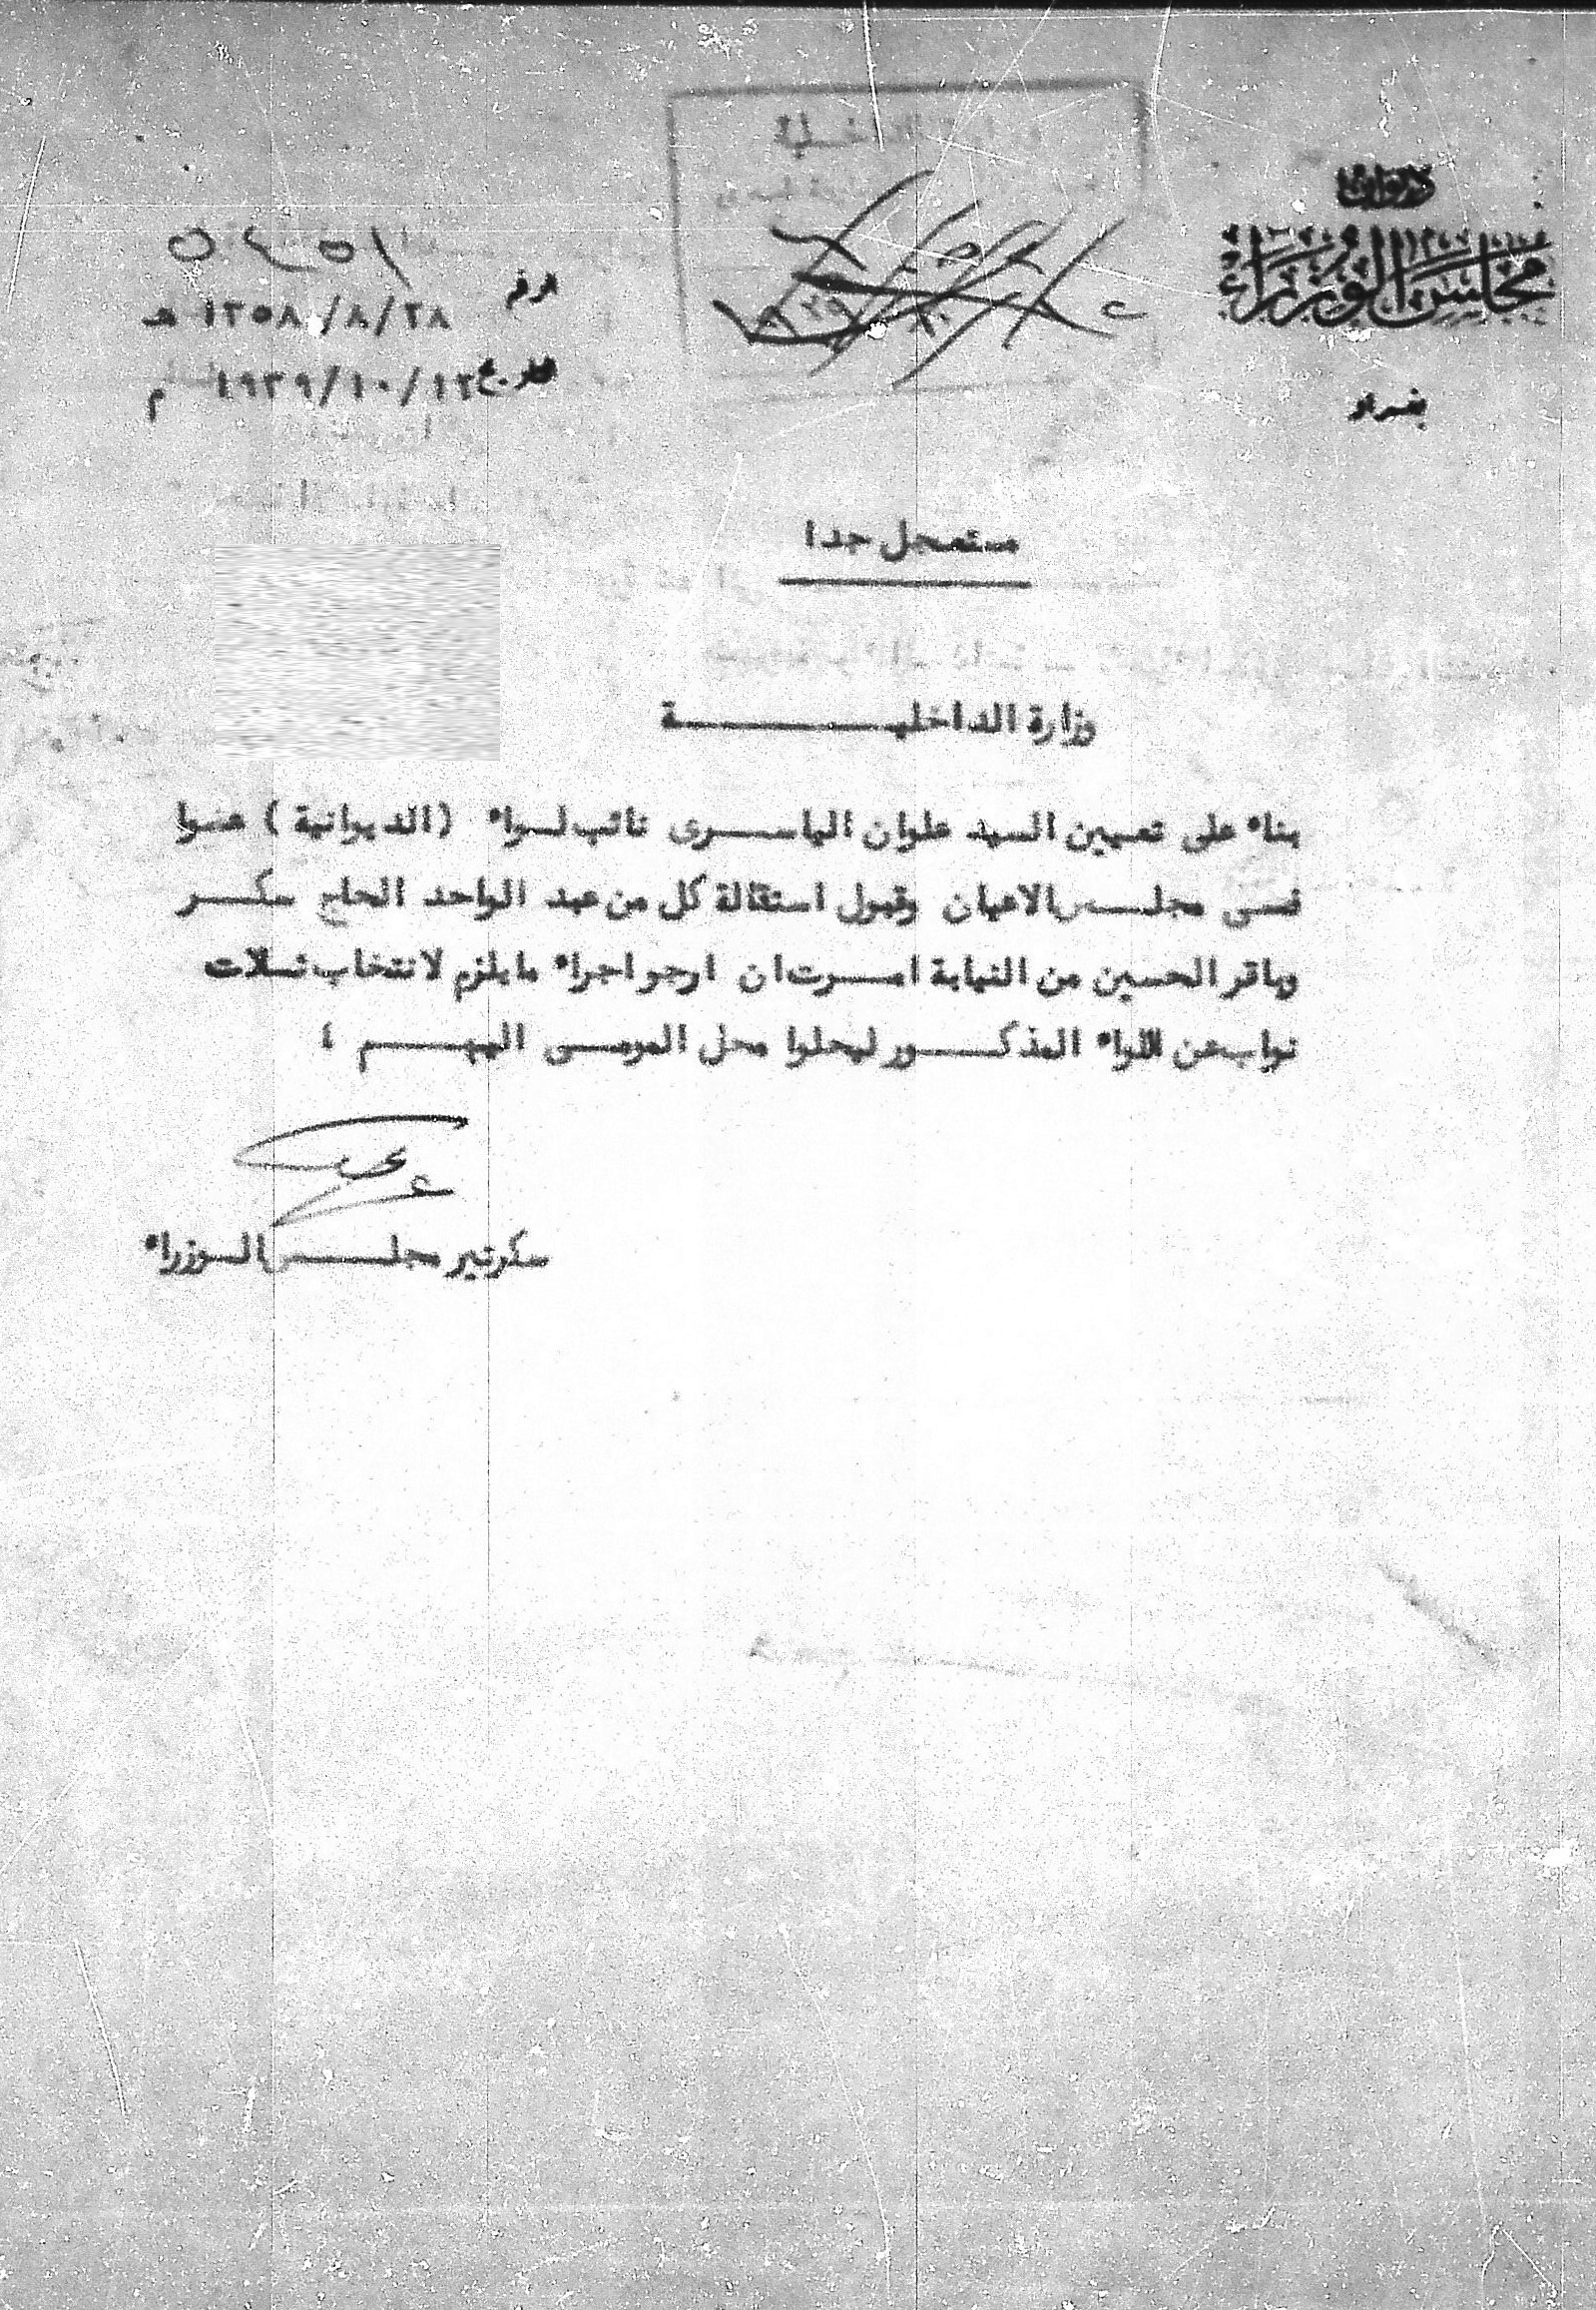 ديوان
مجلس الوزراء
بغداد
الرقم
٥٤٥١
١٣٥٨/٨/٢٨ هـ
التاريخ ١٩٣٩/١٠/١٢ م
الداخلية
مستعجل جدا
وزارة الداخليــــــــة
بناء على تعيين السيد علوان الياســـرى نائب لـــواء (الديوانية) عضوا
فـــى مجلـــس الاعيان وقبول استقالة كل من عبد الواحد الحاج سكـــر
وباقر الحسين من النيابة امـــرت ان ارجو اجراء مايلزم لانتخاب ثـــلاث
نواب عن اللواء المذكـــور ليحلوا محل المومـــى اليهـــم ؛
سكرتير مجلـــس الـــوزراء